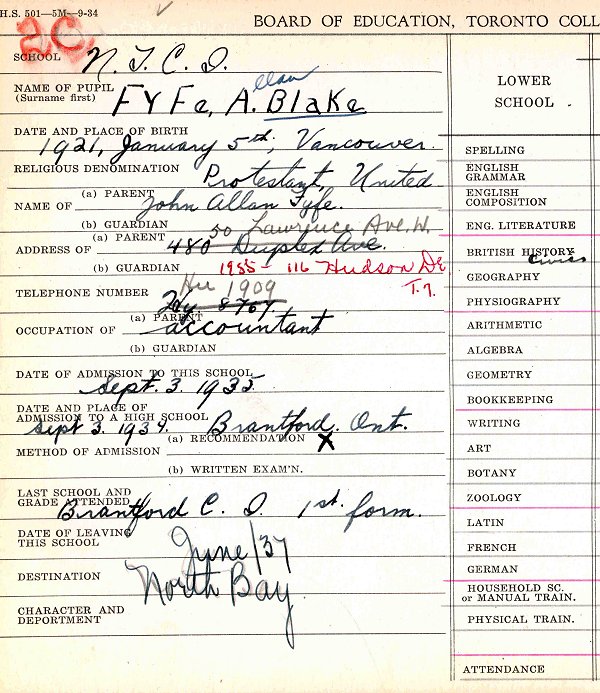 H.S. 501—5M—9-34
BOARD OF EDUCATION, TORONTO COLL
2C
SCHOOL N.T.C.I.
NAME OF PUPIL (Surname first) FYFe, A. Blake
allan
DATE AND PLACE OF BIRTH
1921, January 5th, Vancouver.
RELIGIOUS DENOMINATION Protestant, United
NAME OF (a) PARENT John Allan Fyfe.
(b) GUARDIAN
50 Lawrence Ave. W.
ADDRESS OF (a) PARENT 480 Duplex Ave.
(b) GUARDIAN 1955 - 116 Hudson Dr
T. 7.
TELEPHONE NUMBER Hu 1909
Hy 8767
OCCUPATION OF (a) PARENT accountant
(b) GUARDIAN
DATE OF ADMISSION TO THIS SCHOOL
Sept. 3. 1935
DATE AND PLACE OF ADMISSION TO A HIGH SCHOOL
Sept 3. 1934. Brantford. Ont.
METHOD OF ADMISSION (a) RECOMMENDATION X
(b) WRITTEN EXAM'N.
LAST SCHOOL AND GRADE ATTENDED
Brantford C. I. 1st. form.
DATE OF LEAVING THIS SCHOOL June/37
DESTINATION North Bay
CHARACTER AND DEPORTMENT
LOWER
SCHOOL
SPELLING
ENGLISH GRAMMAR
ENGLISH COMPOSITION
ENG. LITERATURE
BRITISH HISTORY
Civics
GEOGRAPHY
PHYSIOGRAPHY
ARITHMETIC
ALGEBRA
GEOMETRY
BOOKKEEPING
WRITING
ART
BOTANY
ZOOLOGY
LATIN
FRENCH
GERMAN
HOUSEHOLD SC.
or MANUAL TRAIN.
PHYSICAL TRAIN.
ATTENDANCE